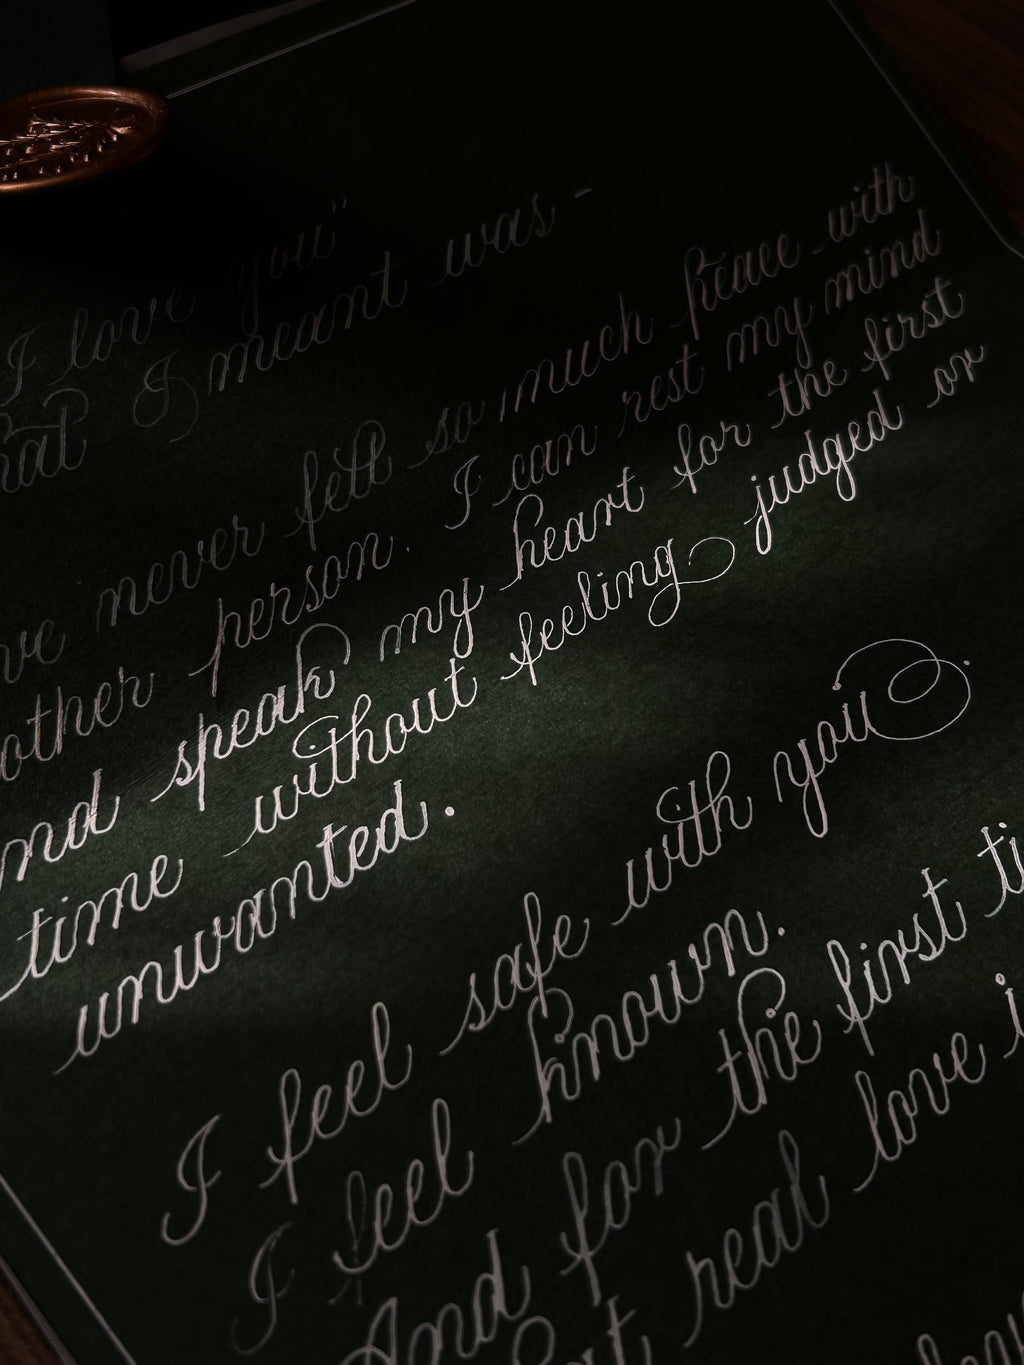 I love you"
hat I meant was -
ve never felt so much peace with
other person. I can rest my mind
nd speak my heart for the first
time without feeling judged or
unwanted.
I feel safe with you
I feel known.
And for the first ti
t real love i